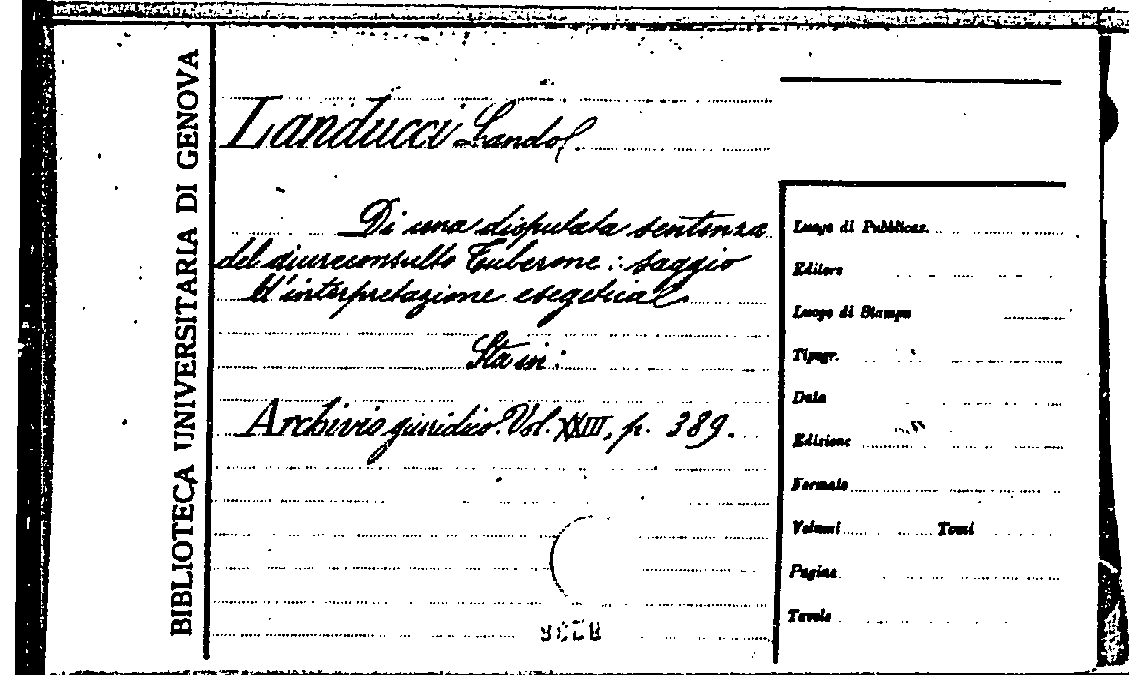 BIBLIOTECA UNIVERSITARIA DI GENOVA
Landucci Landol.
Di una disputata sentenza
del diureconsulto Tuberone: saggio
d'interpretazione esegetica.
Sta in:
Archivio giuridico. Vol. XXIII, p. 389.
Luogo di Pubblicaz.
Editore
Luogo di Stampa
Tipogr.
Data
Edizione
Formato
Volumi Tomi
Pagine
Tavole